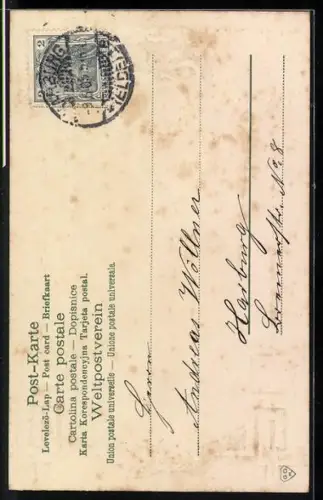 Post-Karte
Levelező-Lap — Post card — Briefkaart
Carte postale
Cartolina postale — Dopisnice
Karta Korespondencyjna Tarjeta postal.
Weltpostverein
Union postale universelle Unione postale universale.
2 2
HARBURG
(ELBE)
Herrn
Andreas Wöllner
Harburg
No 8